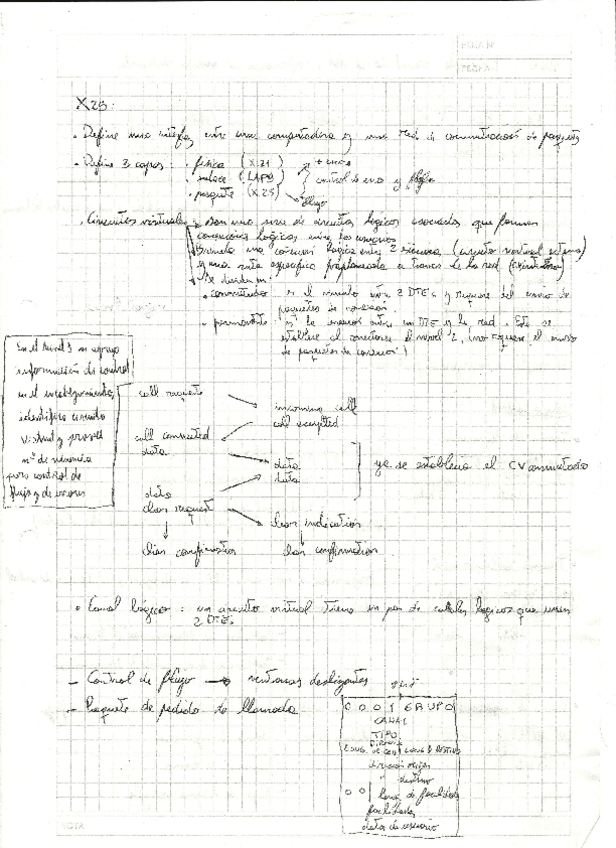 X25:
. Define una interfaz entre una computadora y una red de comunicación de paquetes
. Define 3 capas : . física (X21)
. enlace (LAPB)
. paquete (X25)
control de error y flujo
flujo
. Circuitos virtuales : son una serie de circuitos lógicos asociados que forman
conexiones lógicas entre los usuarios
formada una conexión lógica entre 2 (circuito virtual externo)
y una ruta específica a través de la red
Se dividen en:
. conmutado es el circuito entre 2 DTE's y requiere del envío de
paquetes de conexión.
. permanente es la conexión entre un DTE y la red. Este se
establece al conectarse el nivel 2, (no requiere el envío
de paquetes de conexión)
En el nivel 3 se agrega
información de control
en el encabezamiento,
identifica circuito
virtual y provee
nº de secuencia
para control de
flujo y de errores
call request
incoming call
call accepted
call connected
data
data
data
ya se estableció el CV conmutado
data
clear request
clear indication
clear confirmation
clear confirmation
. Canal lógico : un circuito virtual tiene un par de canales lógicos que unen
2 DTEs.
- Control de flujo → ventanas deslizantes
- Paquete de pedido de llamada
0 0 0 1 GRUPO
CANAL
TIPO
LONG DESTINO
dirección origen
" destino
0 0 | long. de facilidades
facilidades
datos de usuario